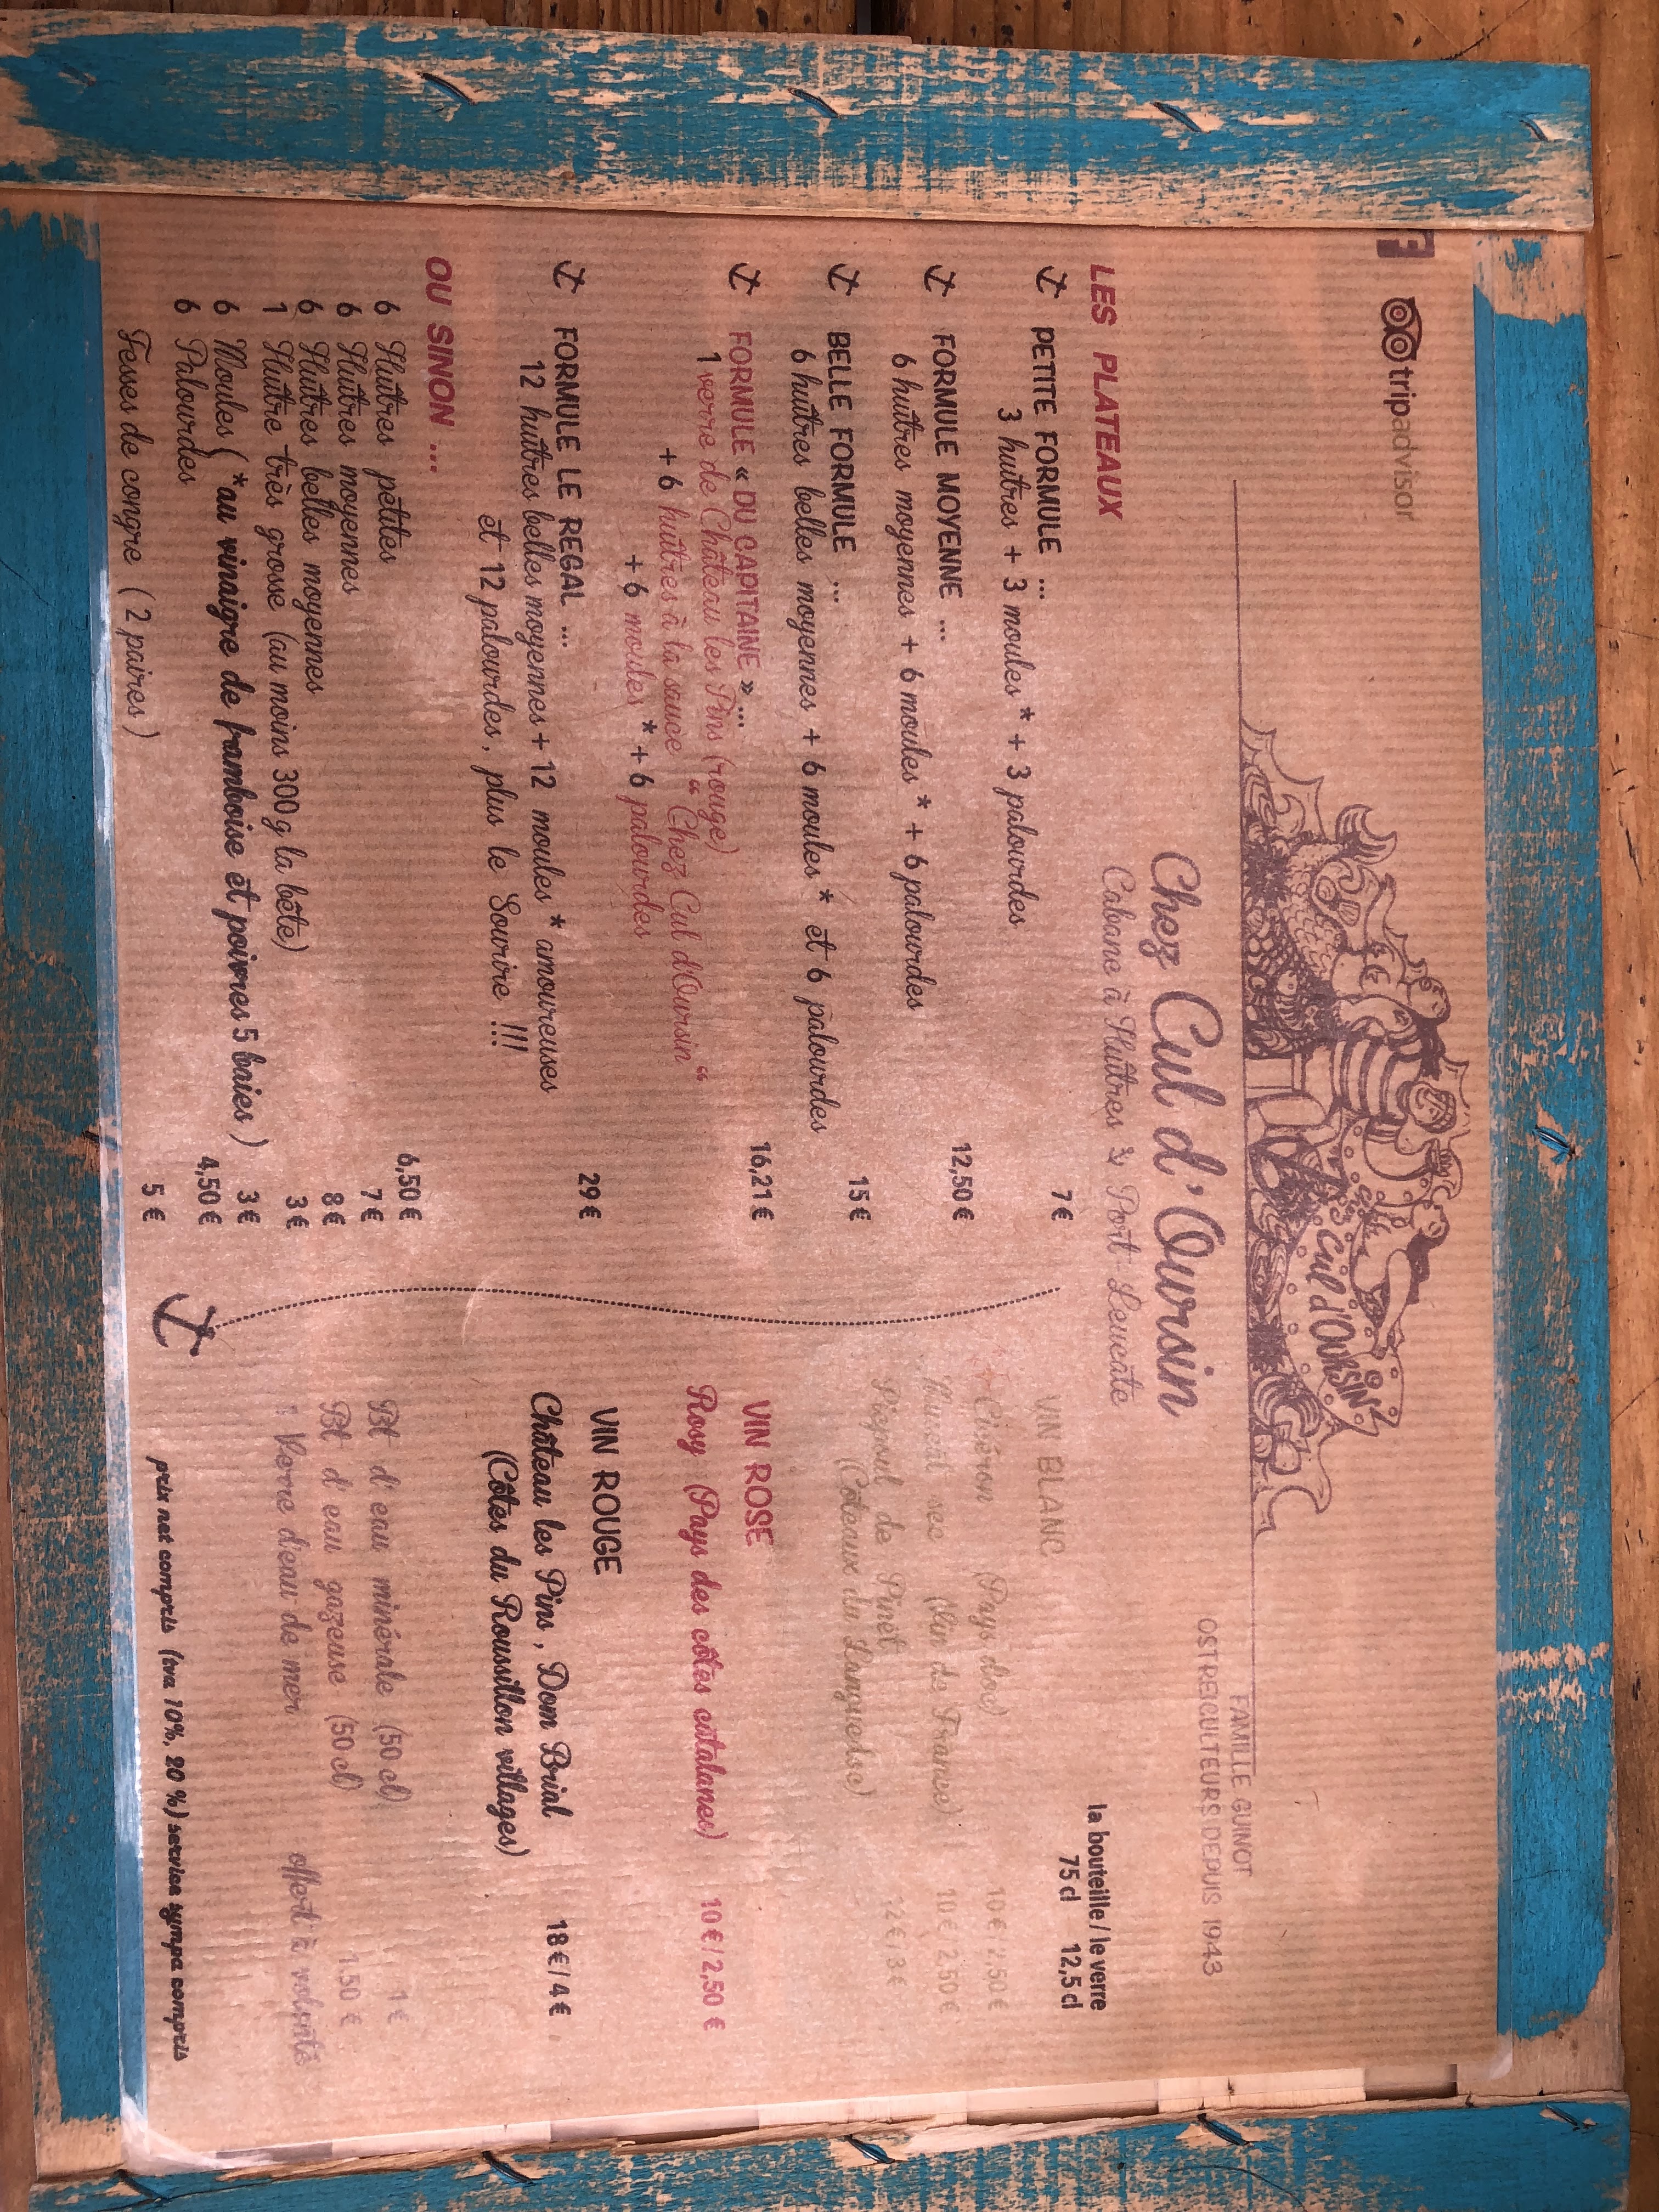 tripadvisor
Cul d'OURSIN
Chez Cul d'Oursin
Cabane à Huîtres Port Leucate
FAMILLE GUINOT
OSTREICULTEURS DEPUIS 1943
LES PLATEAUX
PETITE FORMULE ...
3 huîtres + 3 moules * + 3 palourdes
7 €
FORMULE MOYENNE ...
6 huîtres moyennes + 6 moules * + 6 palourdes
12,50 €
BELLE FORMULE ...
6 huîtres belles moyennes + 6 moules * et 6 palourdes
15 €
FORMULE « DU CAPITAINE » ...
1 verre de Château les Pins (rouge)
+ 6 huîtres à la sauce “ Chez Cul d'Oursin “
+ 6 moules * + 6 palourdes
16,21 €
FORMULE LE REGAL ...
12 huîtres belles moyennes + 12 moules * amoureuses
et 12 palourdes, plus le Sourire !!!
29 €
OU SINON ...
6 Huîtres petites 6,50 €
6 Huîtres moyennes 7 €
6 Huîtres belles moyennes 8 €
1 Huître très grosse (au moins 300g la bête) 3 €
6 Moules ( *au vinaigre de framboise et poivres 5 baies ) 3 €
6 Palourdes 4,50 €
Fesses de congre ( 2 paires ) 5 €
la bouteille / le verre
75 cl 12,5 cl
VIN BLANC
(Pays d'oc) 10 € 2,50 €
Muscat sec (Vin de France) 10 € 2,50 €
Picpoul de Pinet
(Coteaux du Languedoc) 12 € / 3 €
VIN ROSE
Rosy (Pays des côtes catalanes) 10 € / 2,50 €
VIN ROUGE
Château les Pins, Dom Brial
(Côtes du Roussillon villages) 18 € / 4 €
Bt d'eau minérale (50 cl) 1 €
Bt d'eau gazeuse (50 cl) 1.50 €
Verre d'eau de mer offert à volonté
prix net compris (tva 10%, 20 %) service sympa compris